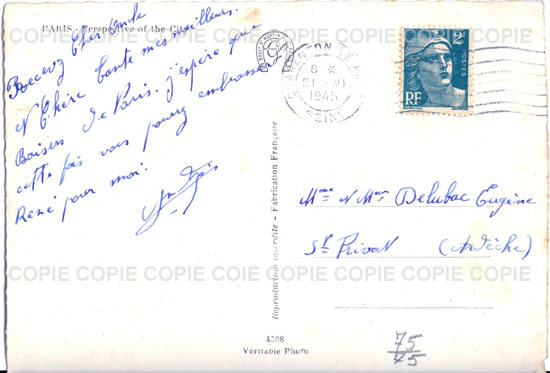 PARIS - Perspective of the City
Recevez Cher Oncle
N Chère Tante mes meilleurs
Baisers de Paris. j'espère que
cette fois vous pourez embrasser
René pour moi.
2F
POSTES
RF
8 *
21 VI
1945
SEINE
Mme N Mer Delubac Eugène
St Privat (Ardèche)
Reproduction interdite - Fabrication Française
4308
Véritable Photo
75
45
COPIE COPIE COPIE COIE COPIE COPIE COPIE
COPIE COPIE COPIE COIE COPIE COPIE COPIE
COPIE COPIE COPIE COIE COPIE COPIE COPIE